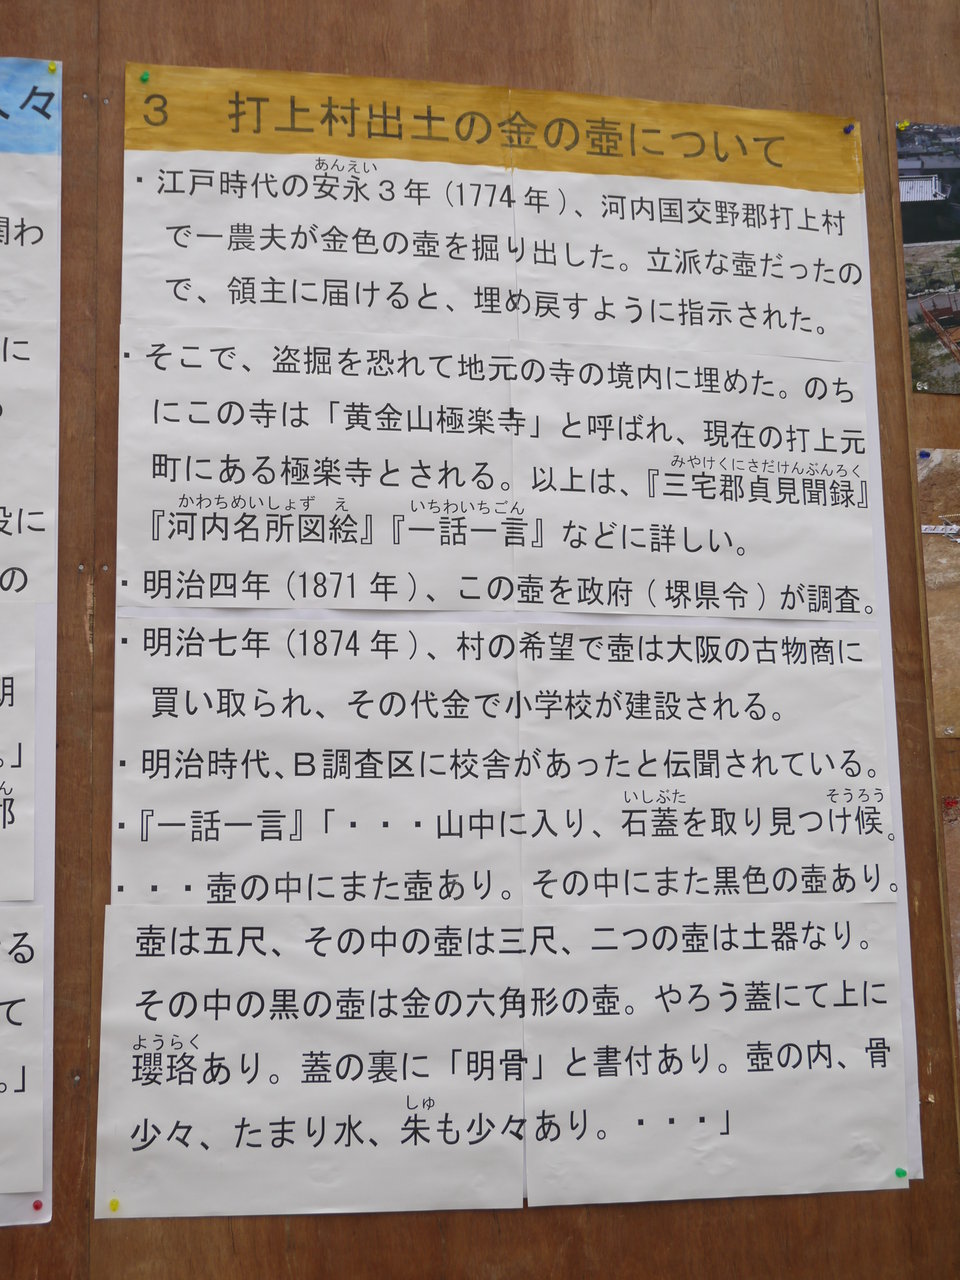 ３　打上村出土の金の壺について
・江戸時代の安永３年（1774年）、河内国交野郡打上村
あんえい
で一農夫が金色の壺を掘り出した。立派な壺だったの
で、領主に届けると、埋め戻すように指示された。
・そこで、盗掘を恐れて地元の寺の境内に埋めた。のち
にこの寺は「黄金山極楽寺」と呼ばれ、現在の打上元
町にある極楽寺とされる。以上は、『三宅郡貞見聞録』
みやけくにさだけんぶんろく
『河内名所図絵』『一話一言』などに詳しい。
かわちめいしょず　え　いちわいちごん
・明治四年（1871年）、この壺を政府（堺県令）が調査。
・明治七年（1874年）、村の希望で壺は大阪の古物商に
買い取られ、その代金で小学校が建設される。
・明治時代、Ｂ調査区に校舎があったと伝聞されている。
・『一話一言』「・・・山中に入り、石蓋を取り見つけ候。
いしぶた　そうろう
・・・壺の中にまた壺あり。その中にまた黒色の壺あり。
壺は五尺、その中の壺は三尺、二つの壺は土器なり。
その中の黒の壺は金の六角形の壺。やろう蓋にて上に
瓔珞あり。蓋の裏に「明骨」と書付あり。壺の内、骨
ようらく
少々、たまり水、朱も少々あり。・・・」
しゅ
々
関わ
に
役に
の
明
。」
ん
郎
る
て
。」